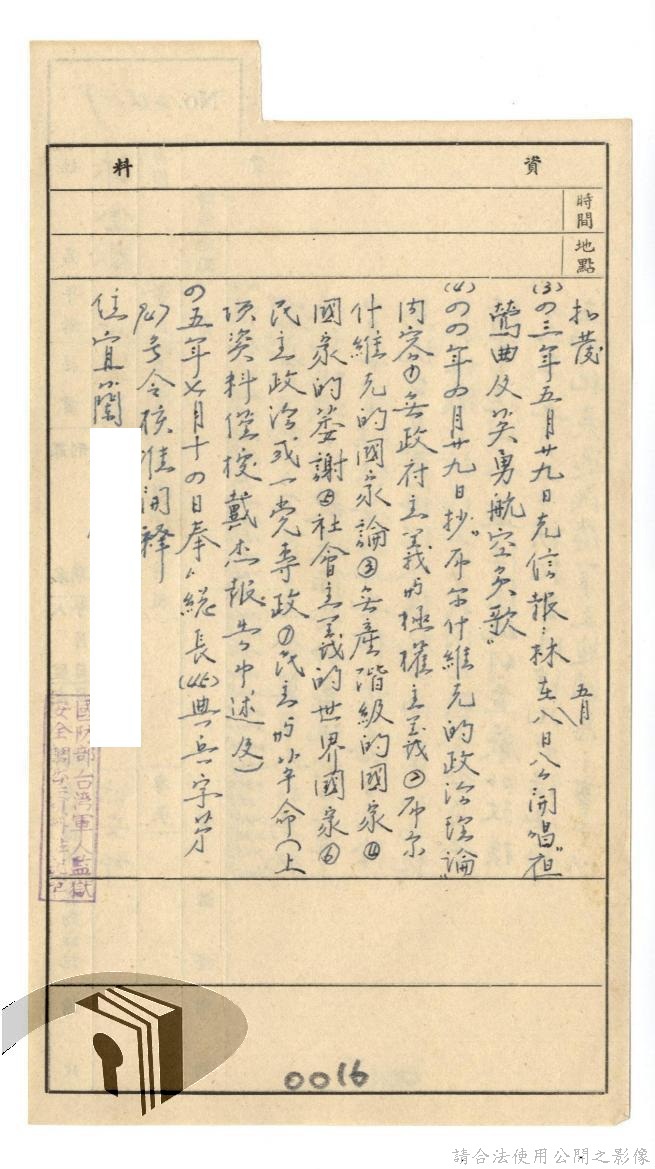 資料
時間
地點
扣發
(3)四三年五月廿九日克信報：林在五月八日公開唱“夜
鶯曲及英勇航空員歌”
(4)四四年四月廿九日抄“布尔什維克的政治理論”
內容①無政府主義的極權主義②布尔
什維克的國家論③無產階級的國家④
國家的萎謝⑤社會主義的世界國家⑥
民主政治或一党專政⑦民主的革命(上
項資料僅按戴杰報告中述及)
四五年七月十四日奉總長(45)典兵字第
號令核准開釋
住宜蘭
國防部台湾軍人監獄
0016
請合法使用公開之影像